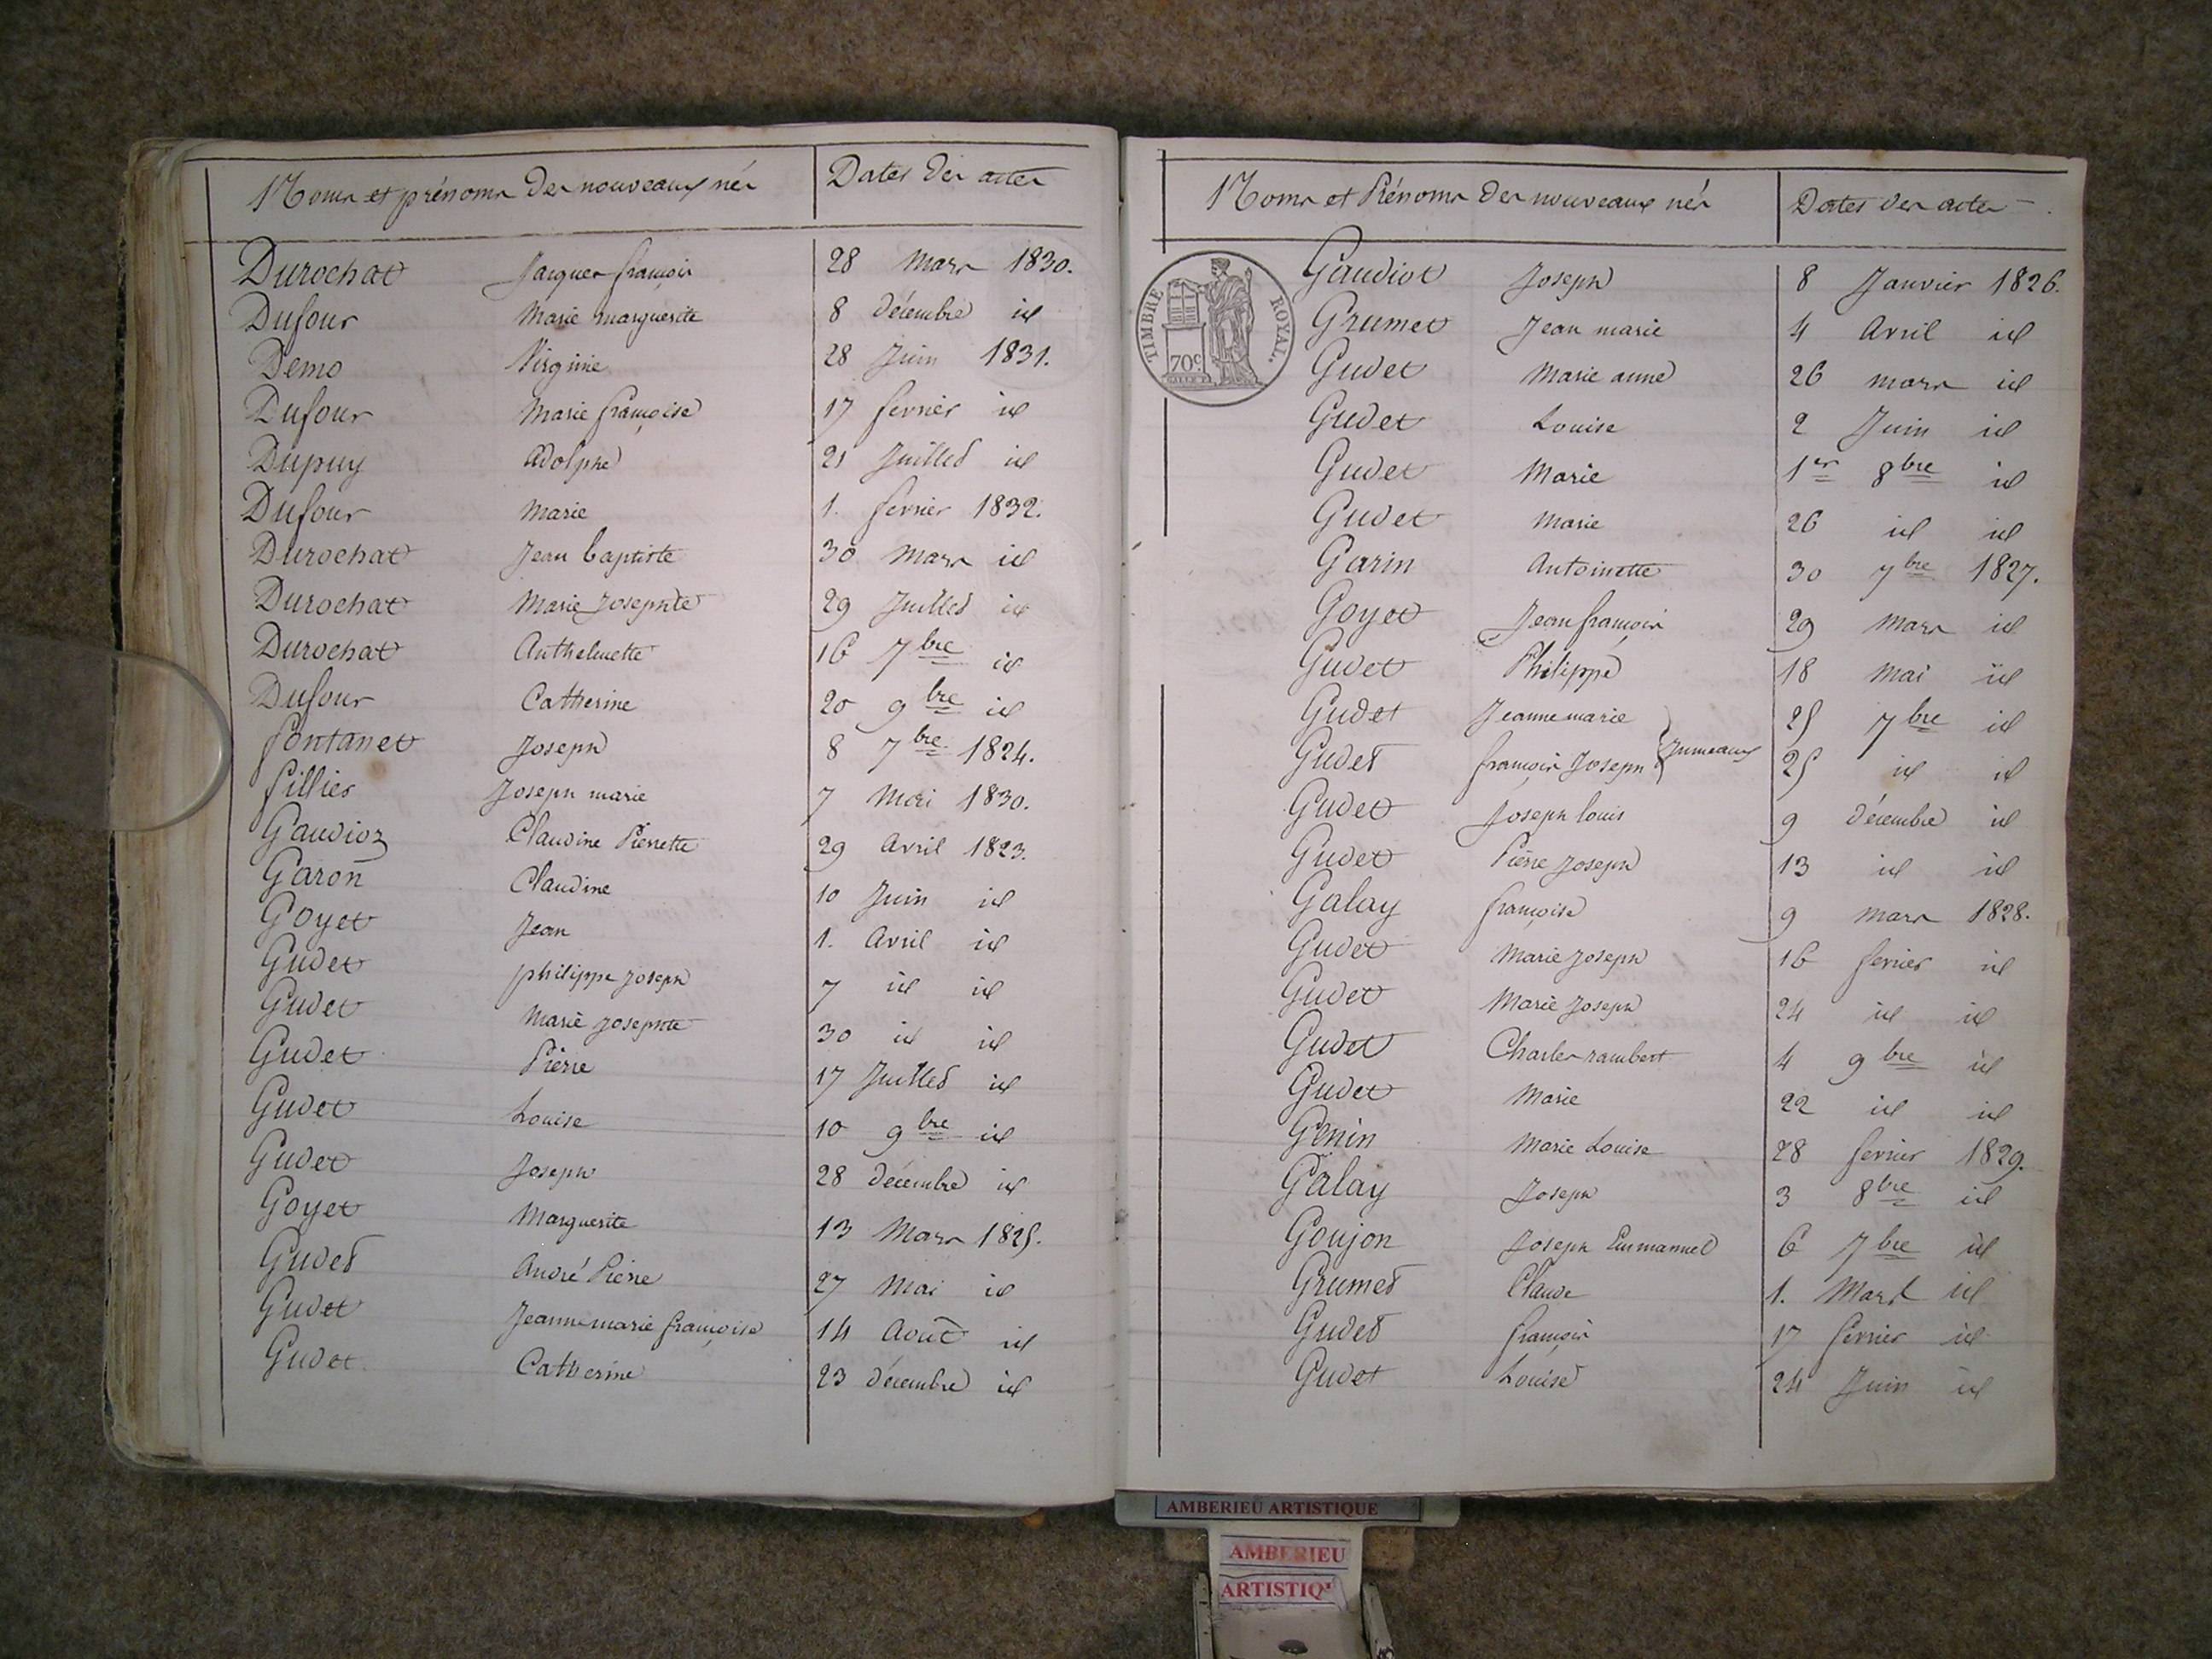 Noms et prénoms des nouveaux nés Dates des actes
Durochat Jacques françois 28 Mars 1830.
Dufour Marie marguerite 8 décembre id
Demo Virginie 28 Juin 1831.
Dufour Marie françoise 17 fevrier id
Dupuy adolphe 21 Juillet id
Dufour Marie 1. fevrier 1832.
Durochat Jean baptiste 30 Mars id
Durochat Marie Josephte 29 Juillet id
Durochat Anthelmette 16 7bre id
Dufour Catherine 20 9bre id
fontanet Joseph 8 7bre 1824.
fillier Joseph marie 7 Mai 1830.
Gaudioz Claudine Pierrette 29 Avril 1823.
Garon Claudine 10 Juin id
Goyet Jean 1. Avril id
Gudet philippe joseph 7 id id
Gudet Marie josephte 30 id id
Gudet Pierre 17 Juillet id
Gudet Louise 10 9bre id
Gudet Joseph 28 décembre id
Goyet Marguerite 13 Mars 1825.
Gudet André Pierre 27 Mai id
Gudet Jeanne marie françoise 14 Août id
Gudet Catherine 23 décembre id
Noms et Prénoms des nouveaux nés Dates des actes
TIMBRE ROYAL.
70c
Gaudiot Joseph 8 Janvier 1826.
Grumet Jean marie 4 Avril id
Gudet Marie anne 26 mars id
Gudet Louise 2 Juin id
Gudet Marie 1er 8bre id
Gudet Marie 26 id id
Garin Antoinette 30 7bre 1827.
Goyet Jean françois 29 Mars id
Gudet Philippe 18 Mai id
Gudet Jeanne marie 25 7bre id
Gudet françois Joseph Jumeaux 25 id id
Gudet Joseph louis 9 décembre id
Gudet Pierre Joseph 13 id id
Galay françoise 9 mars 1828.
Gudet Marie Joseph 16 fevrier id
Gudet Marie Joseph 24 id id
Gudet Charles rambert 4 9bre id
Gudet Marie 22 id id
Genin Marie Louise 28 fevrier 1829.
Galay Joseph 3 8bre id
Goujon Joseph Emmanuel 6 7bre id
Grumet Claude 1. Mars id
Gudet françois 17 fevrier id
Gudet Louise 24 Juin id
AMBERIEU ARTISTIQUE
AMBERIEU
ARTISTIQ